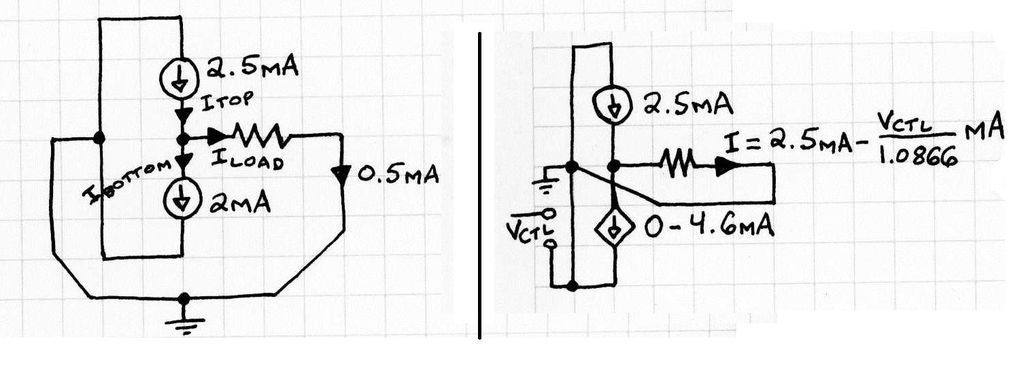 2.5mA
ITOP
ILOAD
IBOTTOM
0.5mA
2mA
2.5mA
I = 2.5mA - VCTL/1.0866 mA
VCTL
0-4.6mA